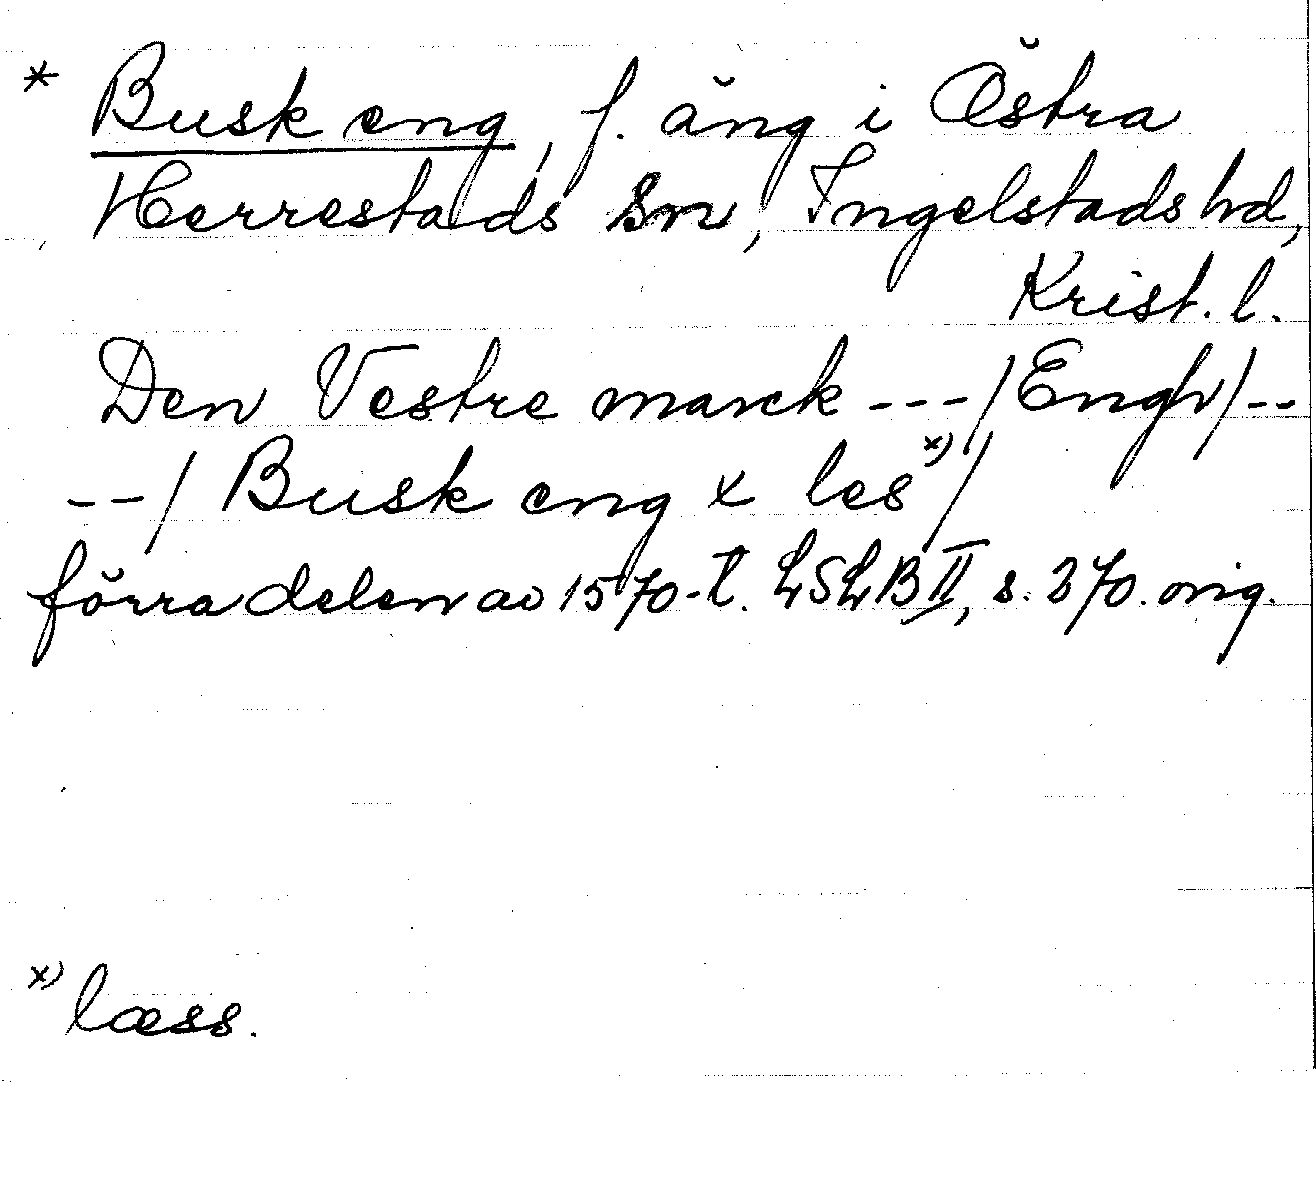 * Busk eng, f. äng i Östra
Herrestads sn, Ingelstads hd,
Krist. l.
Den Vestre marck --- / Engh / --
-- / Busk eng x les x) /
förra delen av 1570-t. LSLB II, s. 370. orig.
x) læss.